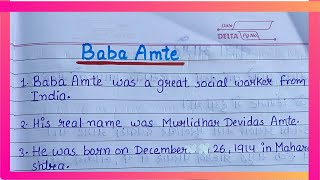 DATE
DELTA Pg No.
Baba Amte
1. Baba Amte was a great social worker from
India.
2. His real name was Murlidhar Devidas Amte.
3. He was born on December 26, 1914 in Mahara
shtra.